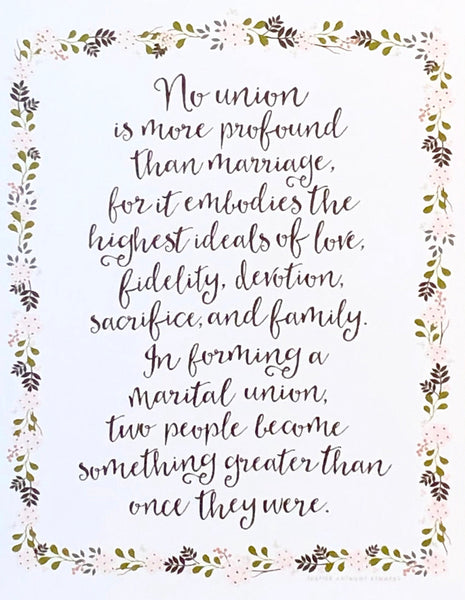 No union
is more profound
than marriage,
for it embodies the
highest ideals of love,
fidelity, devotion,
sacrifice, and family.
In forming a
marital union,
two people become
something greater than
once they were.
JUSTICE ANTHONY KENNEDY